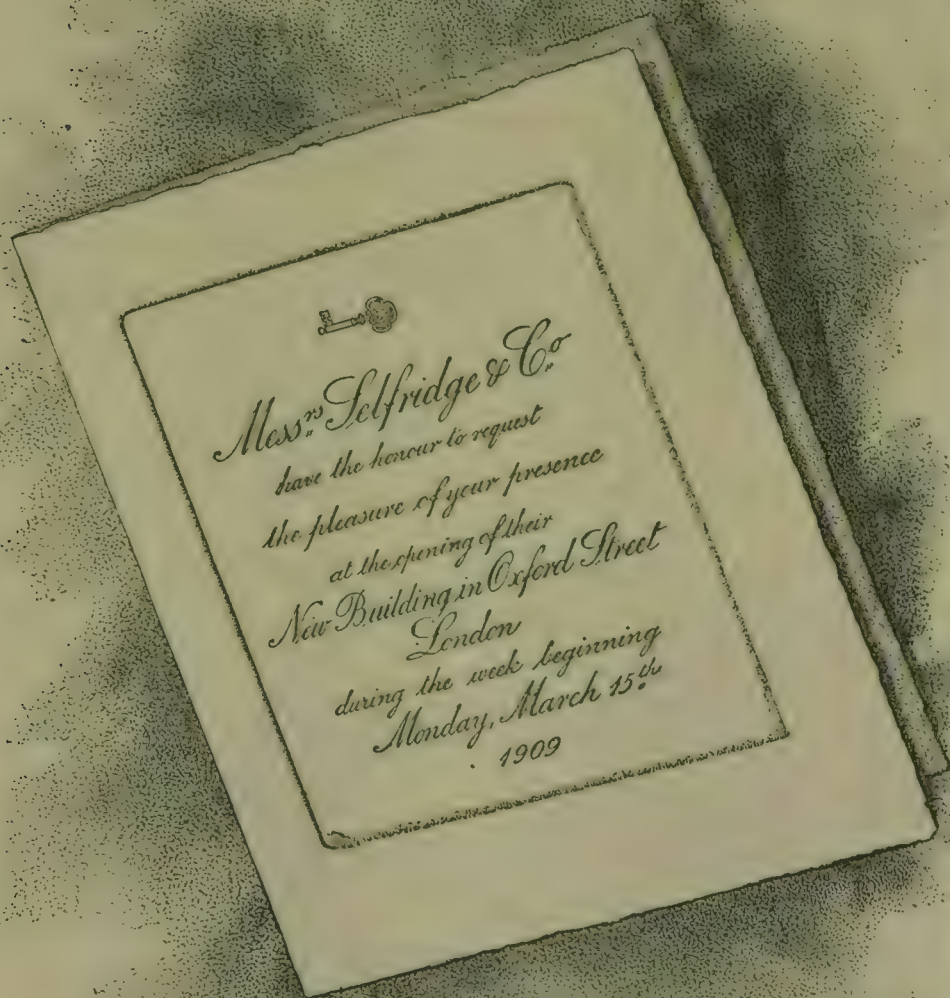 Mess.rs Selfridge & Co.
have the honour to request
the pleasure of your presence
at the opening of their
New Building in Oxford Street
London
during the week beginning
Monday, March 15.th
1909